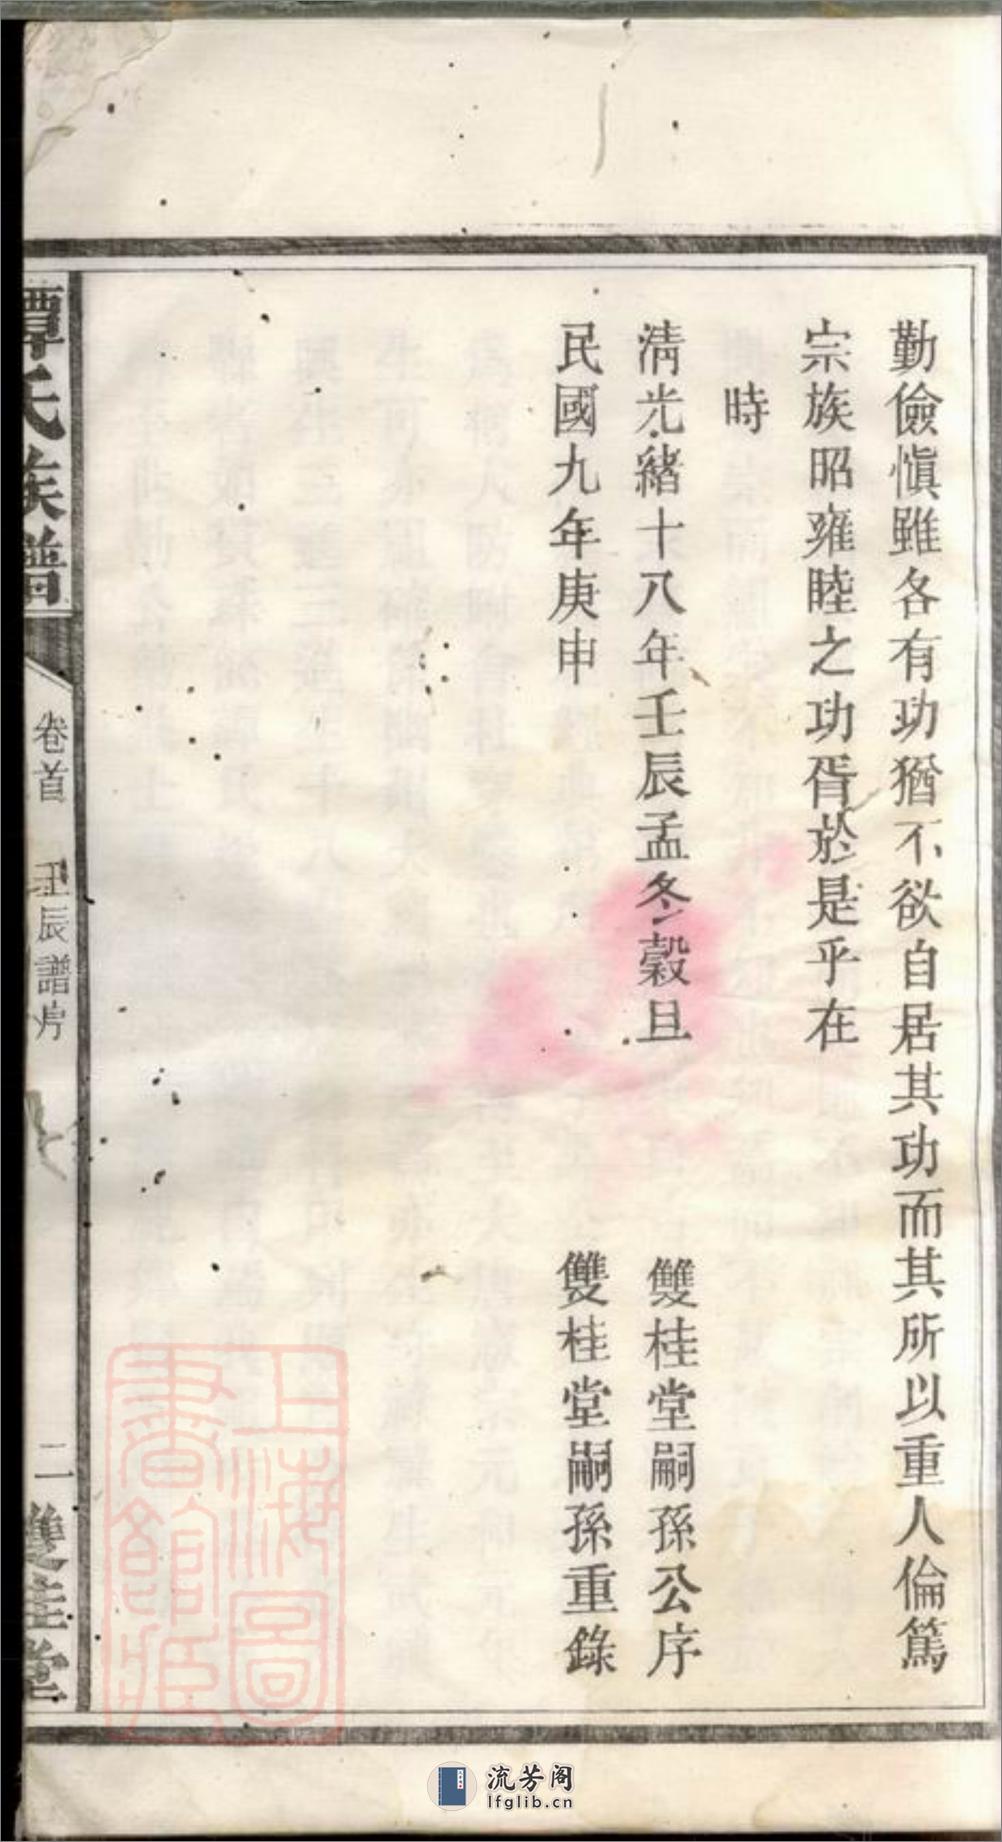 勤儉愼雖各有功猶不欲自居其功而其所以重人倫篤
宗族昭雍睦之功胥於是乎在
時
淸光緖十八年壬辰孟冬穀旦 雙桂堂嗣孫公序
民國九年庚申 雙桂堂嗣孫重錄
譚氏族譜 卷首 壬辰譜序 二 雙桂堂
上海圖書館藏
流芳阁
lfglib.cn